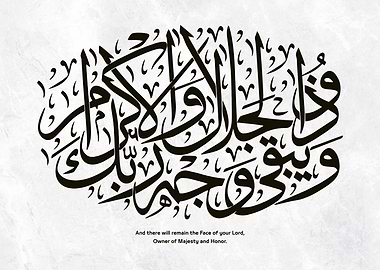 ويبقى وجه ربك
ذو الجلال والإكرام
And there will remain the Face of your Lord,
Owner of Majesty and Honor.